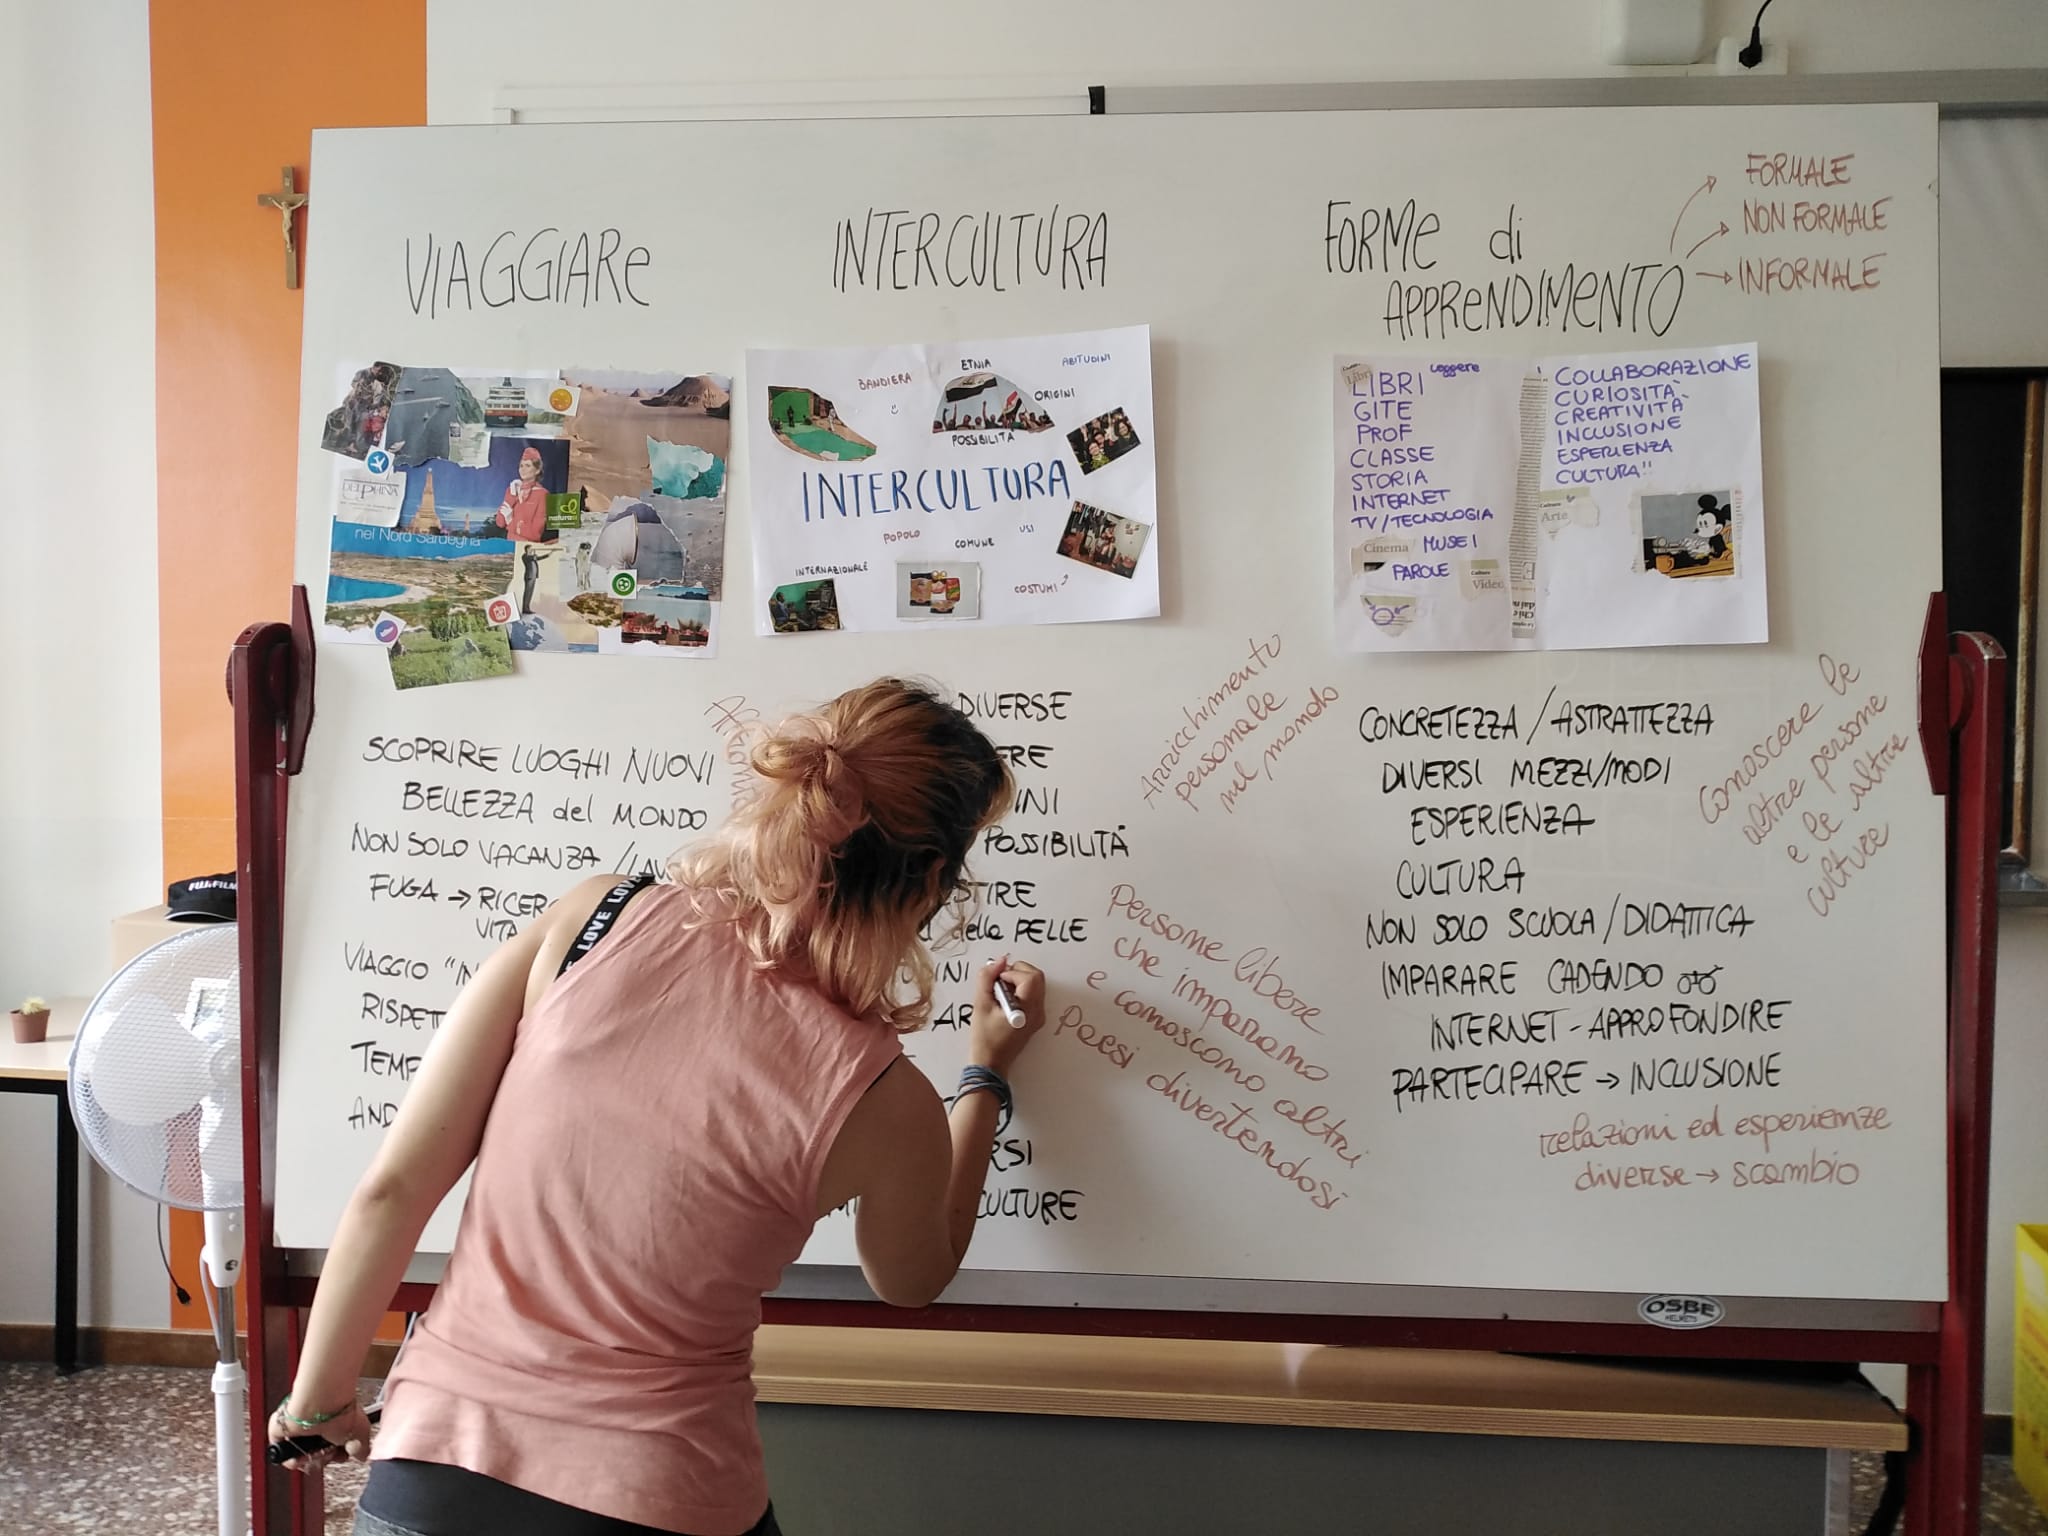 VIAGGIARE
INTERCULTURA
FORME di
APPRENDIMENTO
FORMALE
NON FORMALE
INFORMALE
DELPHINA
natura
nel Nord Sardegna
BANDIERA
ETNIA
ABITUDINI
ORIGINI
POSSIBILITÀ
INTERCULTURA
POPOLO
COMUNE
USI
INTERNAZIONALE
COSTUMI
Libri
leggere
LIBRI
GITE
PROF
CLASSE
STORIA
INTERNET
TV/TECNOLOGIA
Cinema
MUSEI
PAROLE
Cultura
Video
COLLABORAZIONE
CURIOSITÀ
CREATIVITÀ
INCLUSIONE
ESPERIENZA
CULTURA!!
Cultura
Arte
SCOPRIRE LUOGHI NUOVI
BELLEZZA del MONDO
NON SOLO VACANZA /LAV
FUGA → RICERC
VITA
VIAGGIO "IN
RISPETT
TEMP
AND
DIVERSE
ERE
INI
POSSIBILITÀ
STIRE
della PELLE
DINI
AR
RSI
CULTURE
Arricchimento
personale
nel mondo
Persone libere
che imparano
e conoscono altri
Paesi divertendosi
CONCRETEZZA /ASTRATTEZZA
DIVERSI MEZZI/MODI
ESPERIENZA
CULTURA
NON SOLO SCUOLA /DIDATTICA
IMPARARE CADENDO
INTERNET - APPROFONDIRE
PARTECIPARE → INCLUSIONE
conoscere le
altre persone
e le altre
culture
relazioni ed esperienze
diverse → scambio
LOVE LOVE
FUJIFILM
OSBE
HELMETS